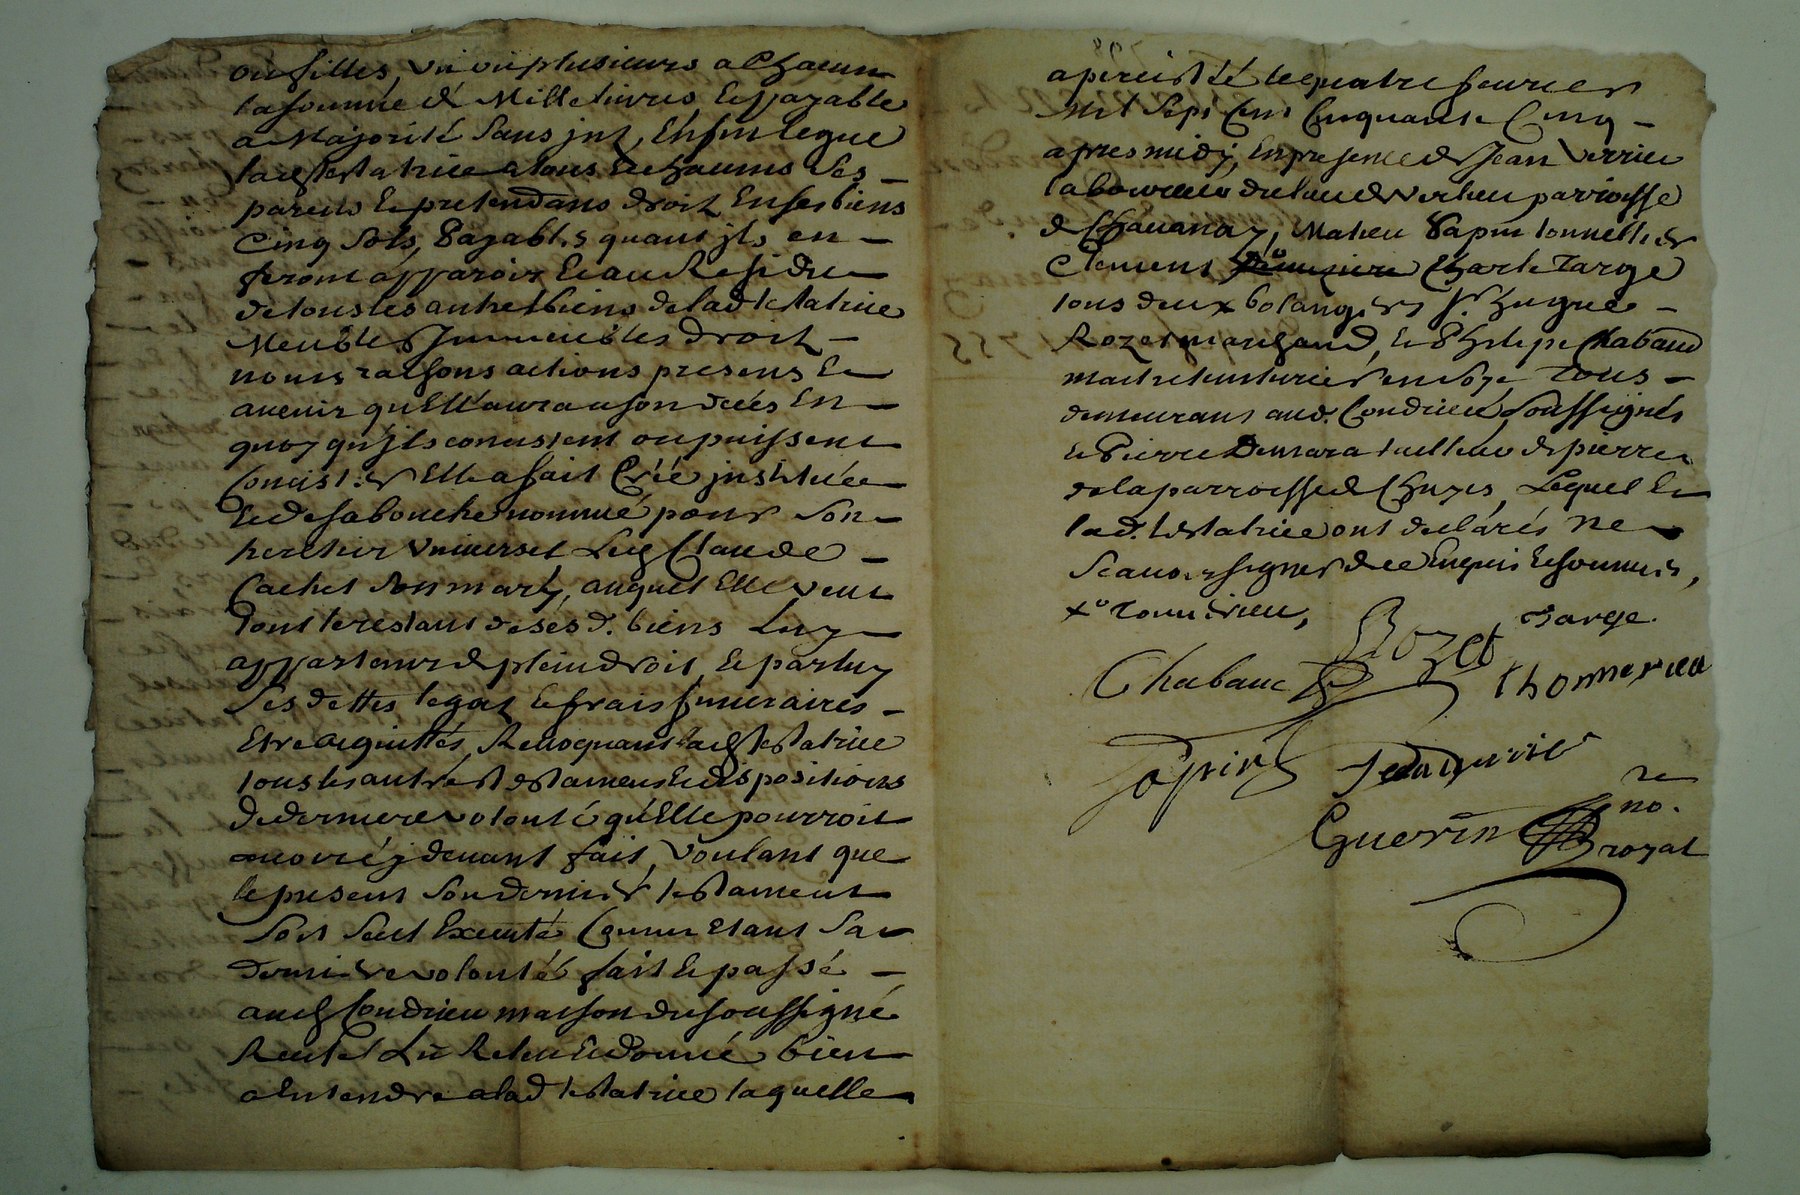 ou filles, un ou plusieurs a Chacun
la somme de Mille livres Le payable
a Majorité sans jnt, Enfin legue
lad testatrice a tous Et chacuns ses -
parens Et pretendans droit En ses biens
Cinq sols, Payables quant jls en -
feront apparoir Et au Residu
de tous les autres biens de lad testatrice
Meubles Immeubles droits -
noms raisons actions presens Et
avenir qu'Elle aura a son decés En -
quoy qu'jls consistent ou puissent
Consister Elle a fait Créé jnstituée
Et de sa bouche nommé pour son -
heretier universel Led Claude -
Cachet son mary, auquel Elle veut
tout le restant de ses d. biens Luy
appartenir de plein droit, Et par luy
ses dettes legat Et frais funeraires -
Etre acquittés, Revoquant lad testatrice
tous les autres testamens Et dispositions
De derniere volonté qu'Elle pourroit
avoir cy devant fait, voulant que
le present son dernier testament
soit seul Executé Comme Etant sa
derniere volontés fait Et passé -
aud Condrieu maison du soussigné
Recuë Lu Releu Et donné bien
a Entendre a lad testatrice laquelle
a persisté le quatre fevrier
Mil sept Cent Cinquante Cinq -
apres midy, En presence de Jean verrier
laboureur du lieu de verlieu parroisse
de Chavanay, Matieu Sapin tonnellier
Clement Charle Targe
tous deux bolangers Sr. hugue -
Rozet marchand, Et Philipe Chabaud
maitre teinturier en soye Tous -
demeurant aud. Condrieu, soussignés
Et Pierre Demara tailleur de pierre
de la parroisse de Chuyes, Lequel Et
lad. testatrice ont declarés ne -
scavoir signer de ce Enquis Et sommés,
Rozet Targe.
Chabaud Thomerieu
Sapin Jean verrier
Guerin no. royal